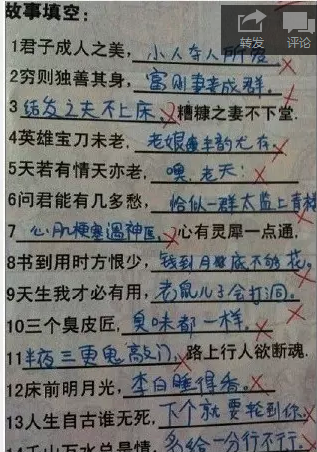 故事填空：
转发 评论
1君子成人之美，小人夺人所爱
2穷则独善其身，富则妻妾成群。
3结发之夫不上床，糟糠之妻不下堂.
4英雄宝刀未老，老娘风韵尤存.
5天若有情天亦老，噢，老天！
6问君能有几多愁，恰似一群太监上青楼
7心肌梗塞遇神医，心有灵犀一点通，
8书到用时方恨少，钱到月底不够花。
9天生我才必有用，老鼠儿子会打洞。
10三个臭皮匠，臭味都一样。
11半夜三更鬼敲门，路上行人欲断魂.
12床前明月光，李白睡得香。
13人生自古谁无死，下个就要轮到你.
14千山万水总是情，多给一分行不行。